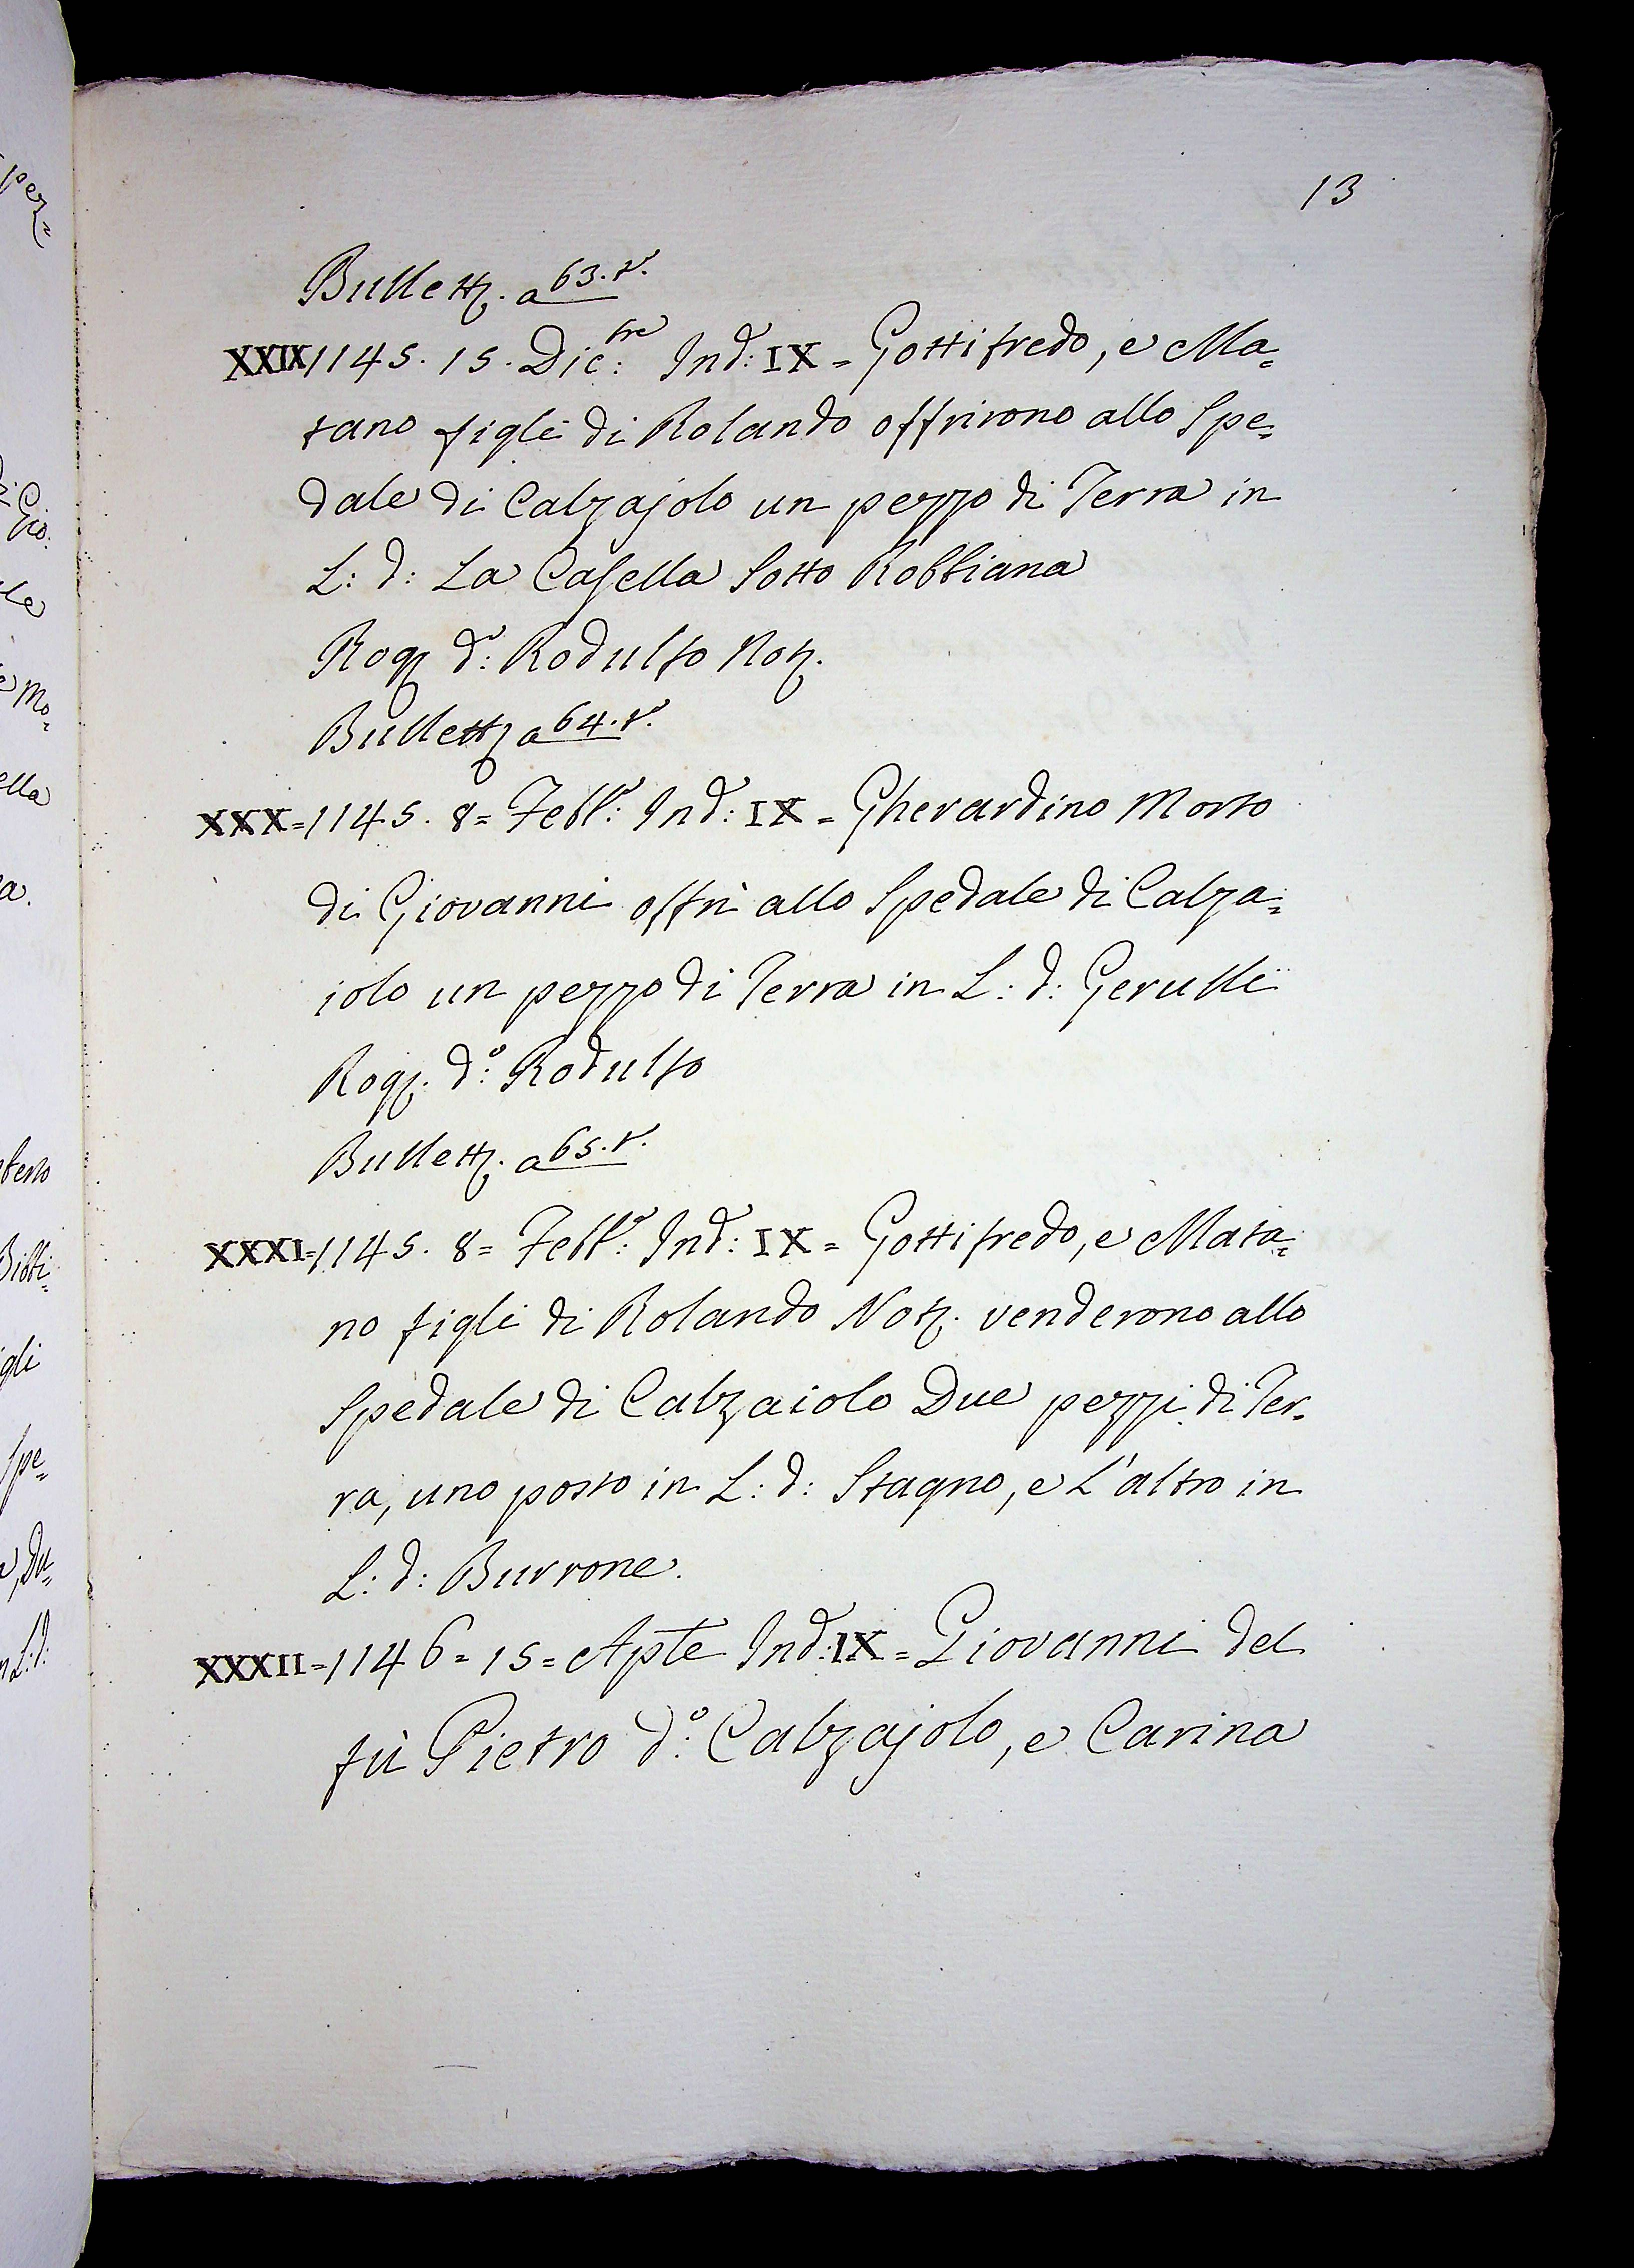 13
Bullett. a 63. r.
XXIX 1145. 15. Dic:bre Ind: IX = Gottifredo, e Ma=
tano figli di Rolando offrirono allo Spe=
dale di Calzajolo un pezzo di Terra in
L: d: La Casella Sotto Robbiana
Rog. d: Rodulfo Not.
Bullett. a 64. r.
XXX = 1145. 8 = Febb: Ind: IX = Gherardino Morto
di Giovanni offrì allo Spedale di Calza=
iolo un pezzo di Terra in L: d: Gerulli
Rog. d:o Rodulfo
Bullett. a 65. r.
XXXI = 1145. 8 = Febb:o Ind: IX = Gottifredo, e Mata=
no figli di Rolando Not. venderono allo
Spedale di Calzaiolo Due pezzi di Ter=
ra, uno posto in L: d: Stagno, e L'altro in
L: d: Burrone.
XXXII = 1146 = 15 = Aple Ind: IX = Giovanni del
fù Pietro d:o Calzajolo, e Carina
per=
Gio.
le
Mo=
ella
a.
berto
Bibbi=
gli
Spe=
Du=
L: d: